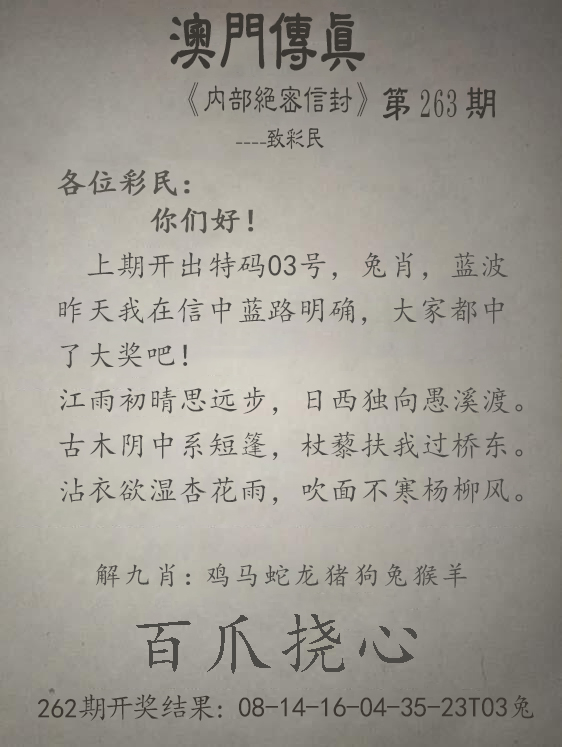 澳門傳真
《内部絕密信封》第263期
----致彩民
各位彩民：
你们好！
上期开出特码03号，兔肖，蓝波
昨天我在信中蓝路明确，大家都中
了大奖吧！
江雨初晴思远步，日西独向愚溪渡。
古木阴中系短篷，杖藜扶我过桥东。
沾衣欲湿杏花雨，吹面不寒杨柳风。
解九肖：鸡马蛇龙猪狗兔猴羊
百爪挠心
262期开奖结果：08-14-16-04-35-23T03兔